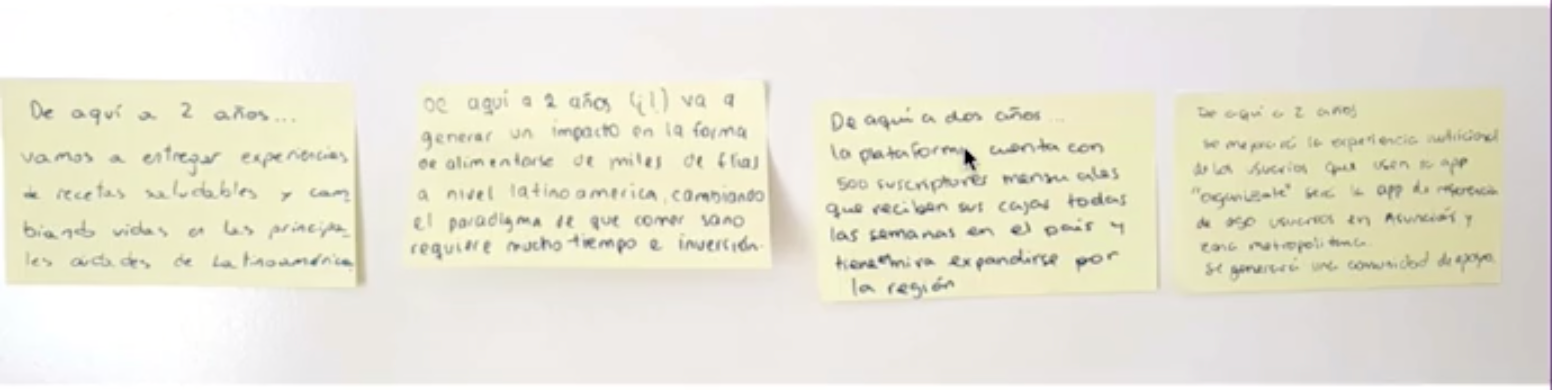 De aquí a 2 años...
vamos a entregar experiencias
de recetas saludables y cam
biando vidas en las principa_
les ciudades de Latinoamérica
De aquí a 2 años (¡!) va a
generar un impacto en la forma
de alimentarse de miles de flias
a nivel latinoamerica, cambiando
el paradigma de que comer sano
requiere mucho tiempo e inversión.
De aquí a dos años...
la plataforma cuenta con
500 suscriptores mensuales
que reciben sus cajas todas
las semanas en el país y
tiene mira expandirse por
la región
De aquí a 2 años
se mejorará la experiencia nutricional
de los usuarios que usen la app
"organizate" será la app de referencia
de usuarios en Asunción y
zona metropolitana.
Se generará una comunidad de apoyo.